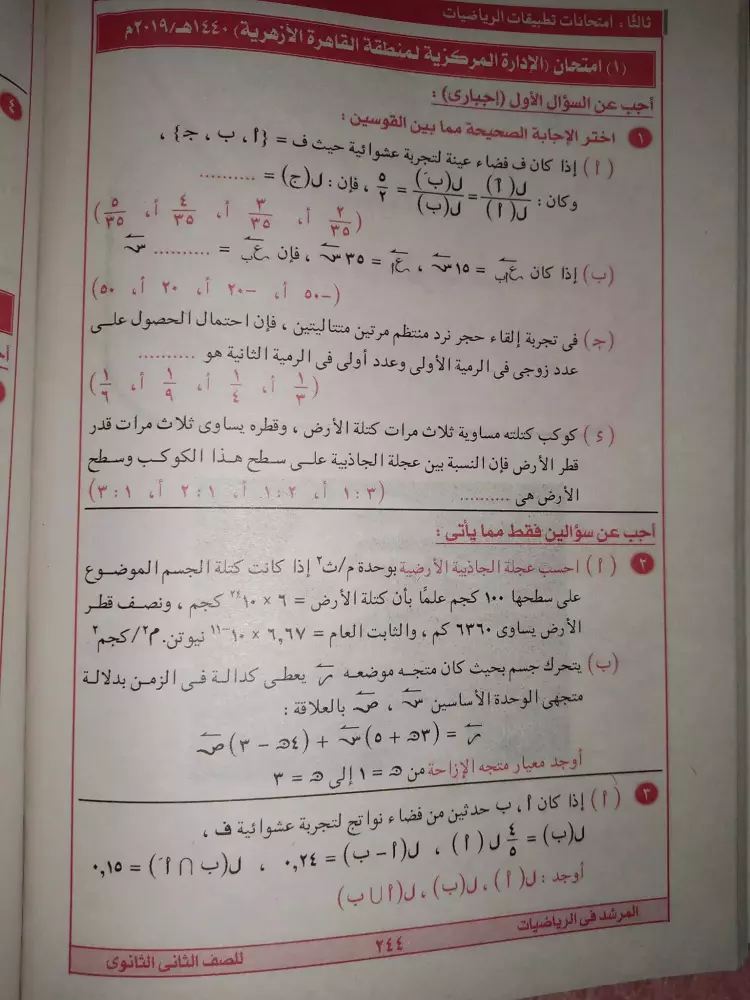 ثالثًا : امتحانات تطبيقات الرياضيات
(١) امتحان (الإدارة المركزية لمنطقة القاهرة الأزهرية) ١٤٤٠هـ/٢٠١٩م
أجب عن السؤال الأول (إجبارى) :
١ اختر الإجابة الصحيحة مما بين القوسين :
( أ ) إذا كان ف فضاء عينة لتجربة عشوائية حيث ف = {أ ، ب ، جـ} ،
وكان : ل(أَ)/ل(أ) = ل(بَ)/ل(ب) = ٥/٢ ، فإن : ل(ج) = ..........
(٢/٣٥ أ، ٣/٣٥ أ، ٤/٣٥ أ، ٥/٣٥)
(ب) إذا كان ع أب = ١٥ س ، ع أ = ٣٥ س ، فإن ع ب = .......... س
(-٥٠ أ، -٢٠ أ، ٢٠ أ، ٥٠)
(جـ) فى تجربة إلقاء حجر نرد منتظم مرتين متتاليتين ، فإن احتمال الحصول على
عدد زوجى فى الرمية الأولى وعدد أولى فى الرمية الثانية هو ..........
(١/٣ أ، ١/٤ أ، ١/٩ أ، ١/٦)
(د) كوكب كتلته مساوية ثلاث مرات كتلة الأرض ، وقطره يساوى ثلاث مرات قدر
قطر الأرض فإن النسبة بين عجلة الجاذبية على سطح هذا الكوكب وسطح
الأرض هى .......... (٣ : ١ أ، ٢ : ١ أ، ١ : ٢ أ، ١ : ٣)
أجب عن سؤالين فقط مما يأتى :
٢ ( أ ) احسب عجلة الجاذبية الأرضية بوحدة م/ث٢ إذا كانت كتلة الجسم الموضوع
على سطحها ١٠٠ كجم علمًا بأن كتلة الأرض = ٦ × ١٠^٢٤ كجم ، ونصف قطر
الأرض يساوى ٦٣٦٠ كم ، والثابت العام = ٦,٦٧ × ١٠^-١١ نيوتن.م٢/كجم٢
(ب) يتحرك جسم بحيث كان متجه موضعه ر يعطى كدالة فى الزمن بدلالة
متجهى الوحدة الأساسين س ، ص بالعلاقة :
ر = (٣ن + ٥) س + (٤ن - ٣) ص
أوجد معيار متجه الإزاحة من ن = ١ إلى ن = ٣
٣ ( أ ) إذا كان أ ، ب حدثين من فضاء نواتج لتجربة عشوائية ف ،
ل(ب) = ٤/٥ ل(أ) ، ل(أ - ب) = ٠,٢٤ ، ل(ب ∩ أَ) = ٠,١٥
أوجد : ل(أ) ، ل(ب) ، ل(أ ∪ ب)
المرشد فى الرياضيات
٢٤٤
للصف الثانى الثانوى
٤